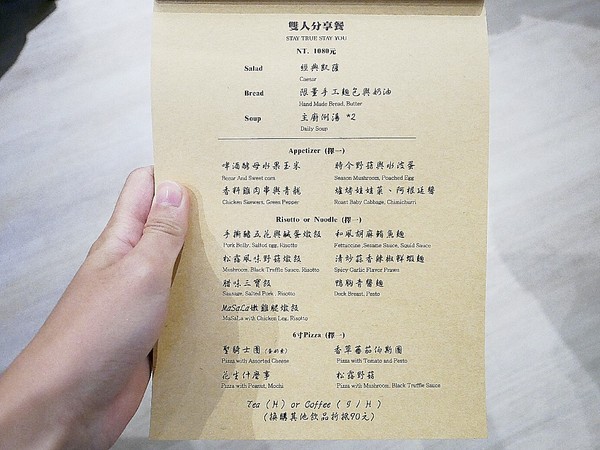 雙人分享餐
STAY TRUE STAY YOU
NT. 1080元
Salad 經典凱薩
Caesar
Bread 限量手工麵包與奶油
Hand Made Bread, Butter
Soup 主廚例湯 *2
Daily Soup
Appetizer (擇一)
啤酒酵母水果玉米 時令野菇與水波蛋
and Sweet corn Season Mushroom, Poached Egg
香料雞肉串與青龍 爐烤娃娃菜、阿根廷醬
Chicken Skewers, Green Pepper Roast Baby Cabbage, Chimichurri
Risotto or Noodle (擇一)
手撕豬五花與鹹蛋燉飯 和風胡麻鮪魚麵
Pork Belly, Salted egg, Risotto Fettuccine ,Sesame Sauce, Squid Sauce
松露風味野菇燉飯 清炒蒜香辣椒鮮蝦麵
Mushroom, Black Truffle Sauce, Risotto Spicy Garlic Flavor Prawn
臘味三寶飯 鴨胸青醬麵
Sausage, Salted Pork , Risotto Duck Breast, Pesto
MaSaLa嫩雞腿燉飯
MaSaLa with Chicken Leg, Risotto
6吋Pizza (擇一)
聖騎士團 香草蕃茄伯斯圖
Pizza with Assorted Cheese Pizza with Tomato and Pesto
花生什麼事 松露野菇
Pizza with Peanut, Mochi Pizza with Mushroom, Black Truffle Sauce
Tea (H) or Coffee ( 5 / H )
(換購其他飲品折抵90元)